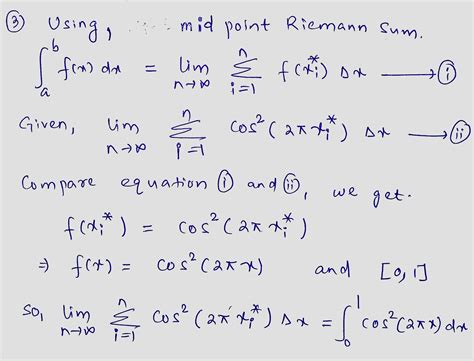 ③ Using, mid point Riemann Sum.
∫_a^b f(x) dx = lim_{n→∞} Σ_{i=1}^{n} f(x_i^*) Δx ⟶ ⓘ
Given, lim_{n→∞} Σ_{i=1}^{n} cos²(2πx_i^*) Δx ⟶ ⓘⓘ
Compare equation ⓘ and ⓘⓘ, we get.
f(x_i^*) = cos²(2πx_i^*)
⇒ f(x) = cos²(2πx) and [0,1]
so, lim_{n→∞} Σ_{i=1}^{n} cos²(2πx_i^*) Δx = ∫_0^1 cos²(2πx) dx